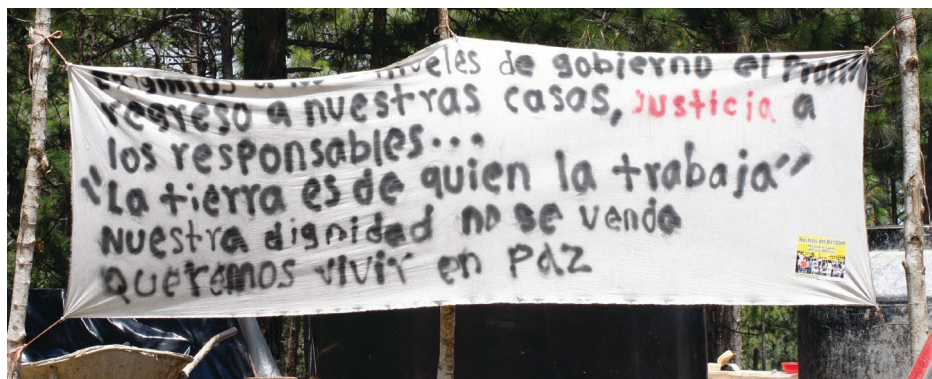 Exigimos a los niveles de gobierno el
regreso a nuestras casas, Justicia a
los responsables...
"La tierra es de quien la trabaja"
Nuestra dignidad no se vende
Queremos vivir en paz